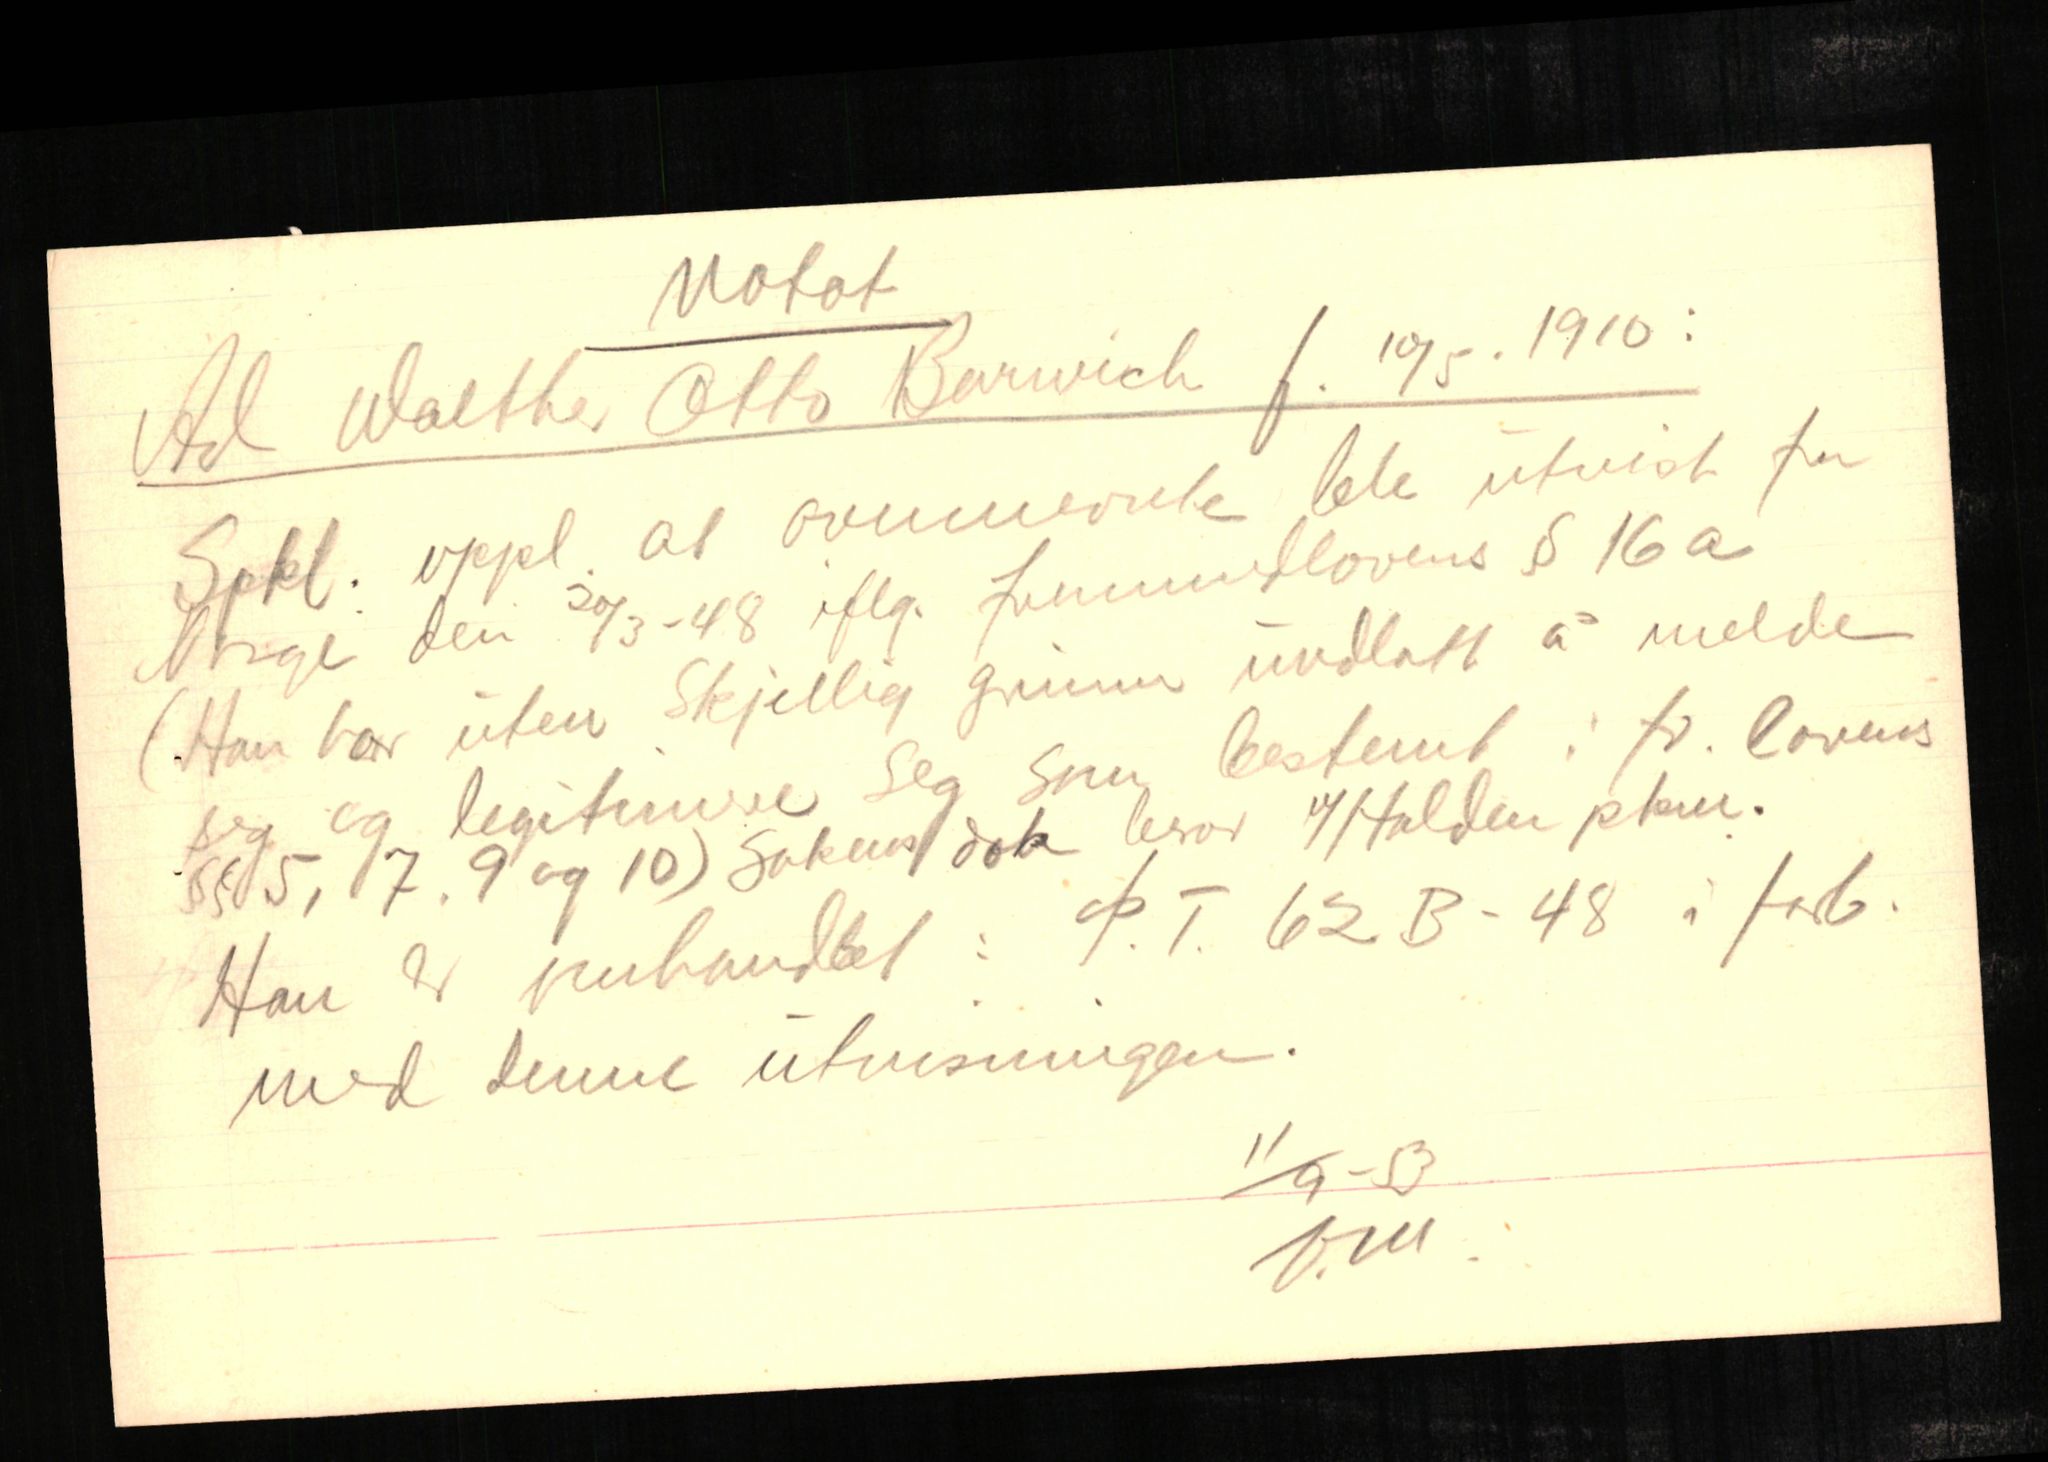 Notat
Ad Walther Otto Barwich f. 10/5. 1910:
Spkt. oppl. at ovennevnte ble utvist fra
Norge den 20/3-48 iflg. fremmedlovens § 16 a
(Han har uten skjellig grunn undlatt å melde
seg og legitimere seg som bestemt i fr. lovens
§§ 5, 7, 9 og 10) Sakens dok beror v/Halden pkm.
Han er innhandlet i P.T. 62 B-48 i forb.
med denne utvisningen.
11/9-53